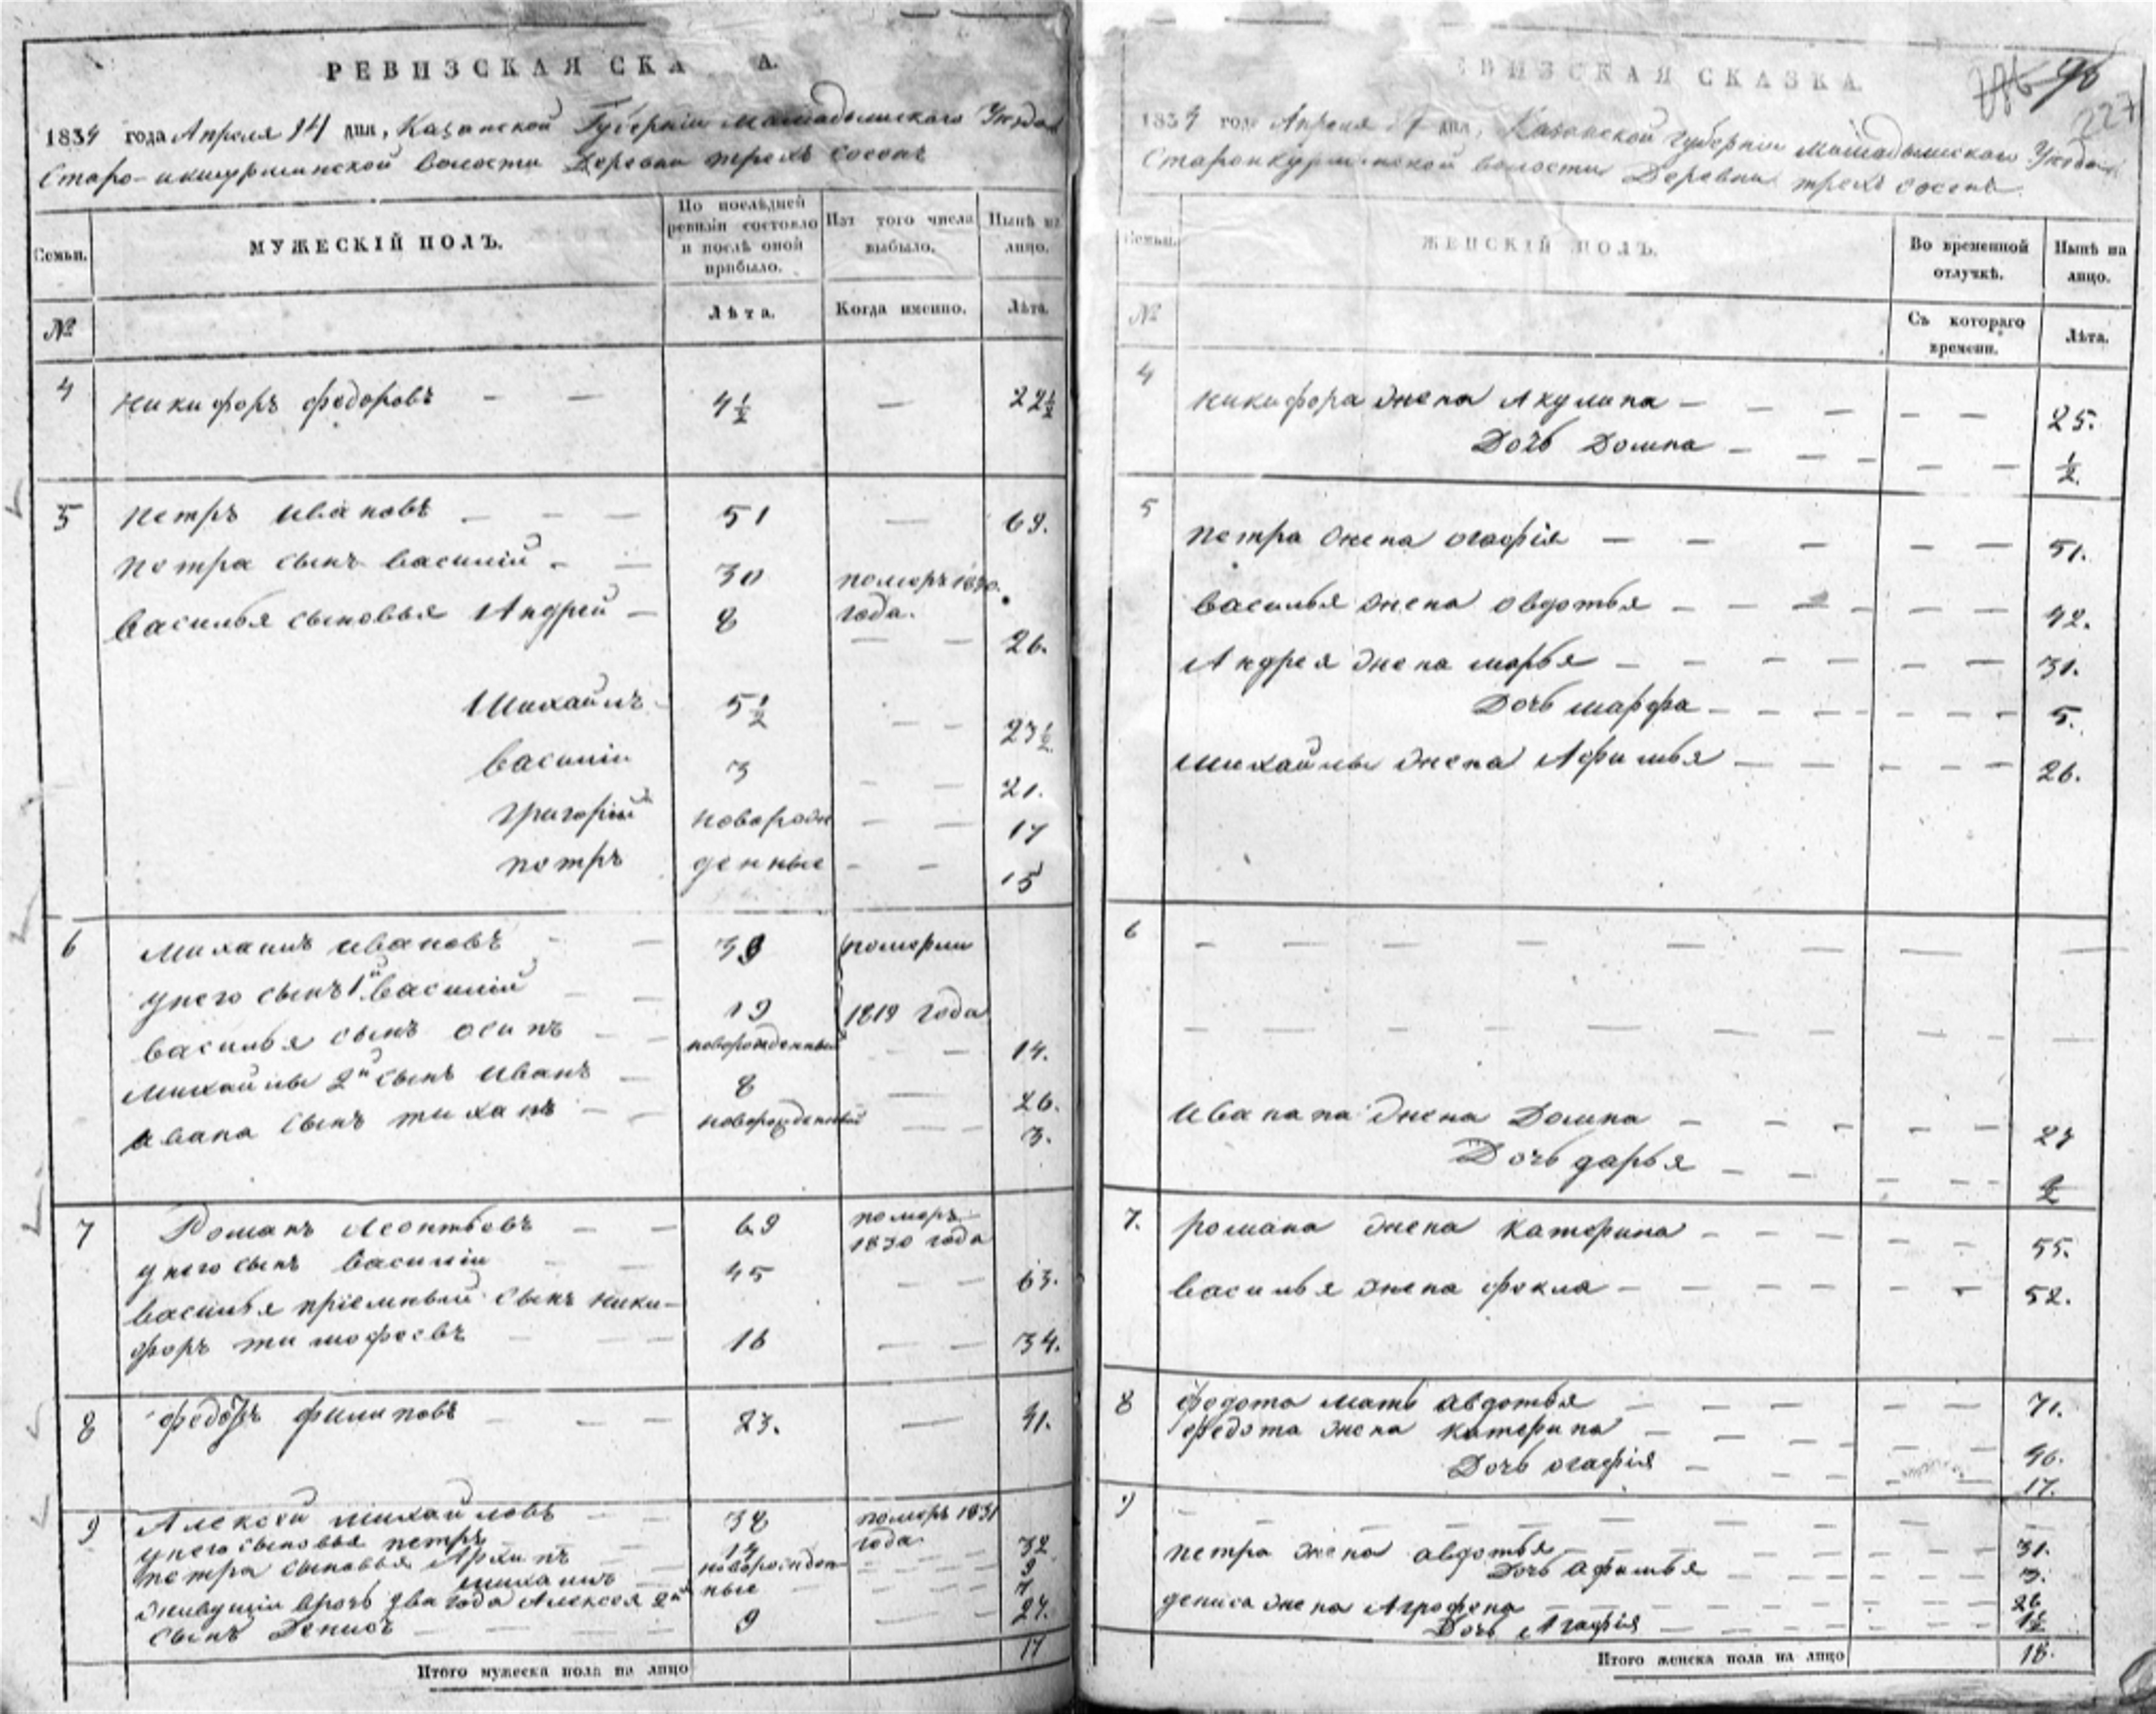 РЕВИЗСКАЯ СКА А.
1834 года Апреля 14 дня, Казанской Губерніи Мамадышского Уезда
Старо- Волости Деревни трехъ сосенъ
Семьи.
МУЖЕСКІЙ ПОЛЪ.
По послѣдней ревизіи состояло и послѣ оной прибыло.
Изъ того числа выбыло.
Нынѣ на лицо.
№
Лѣта.
Когда именно.
Лѣта.
4 Никифоръ федоровъ — — 4 1/2 — 22 1/2
5 петръ Ивановъ — — — 51 — 69.
петра сынъ василій — — 30 померъ 1830.
василья сыновья Андрей — 8 года. — — 26.
Михайлъ 5 1/2 — — 23 1/2
василіи 3 — — 21.
григорій новорож — — 17
петръ денные — — 15
6 Михаилъ ивановъ — — 39 померли
унего сынъ 1й василій — — 19 1819 года
василья сынъ осипъ — — новорожденный — — 14.
михайлы 2й сынъ Иванъ — 8 — 26.
ивана сынъ — — новорожденный — — 3.
7 Романъ Леонтьевъ — — 69 померъ
1830 года
унего сынъ василіи — — 45 — — 63.
василья пріемный сынъ ники-
форъ тимофеевъ — — 16 — — 34.
8 федотъ филиповъ — — — 23. — 41.
9 Алексеи михайловъ — — 38 померъ 1831
унего сыновья петръ 14 года. 32
петра сыновья Архипъ новорожден — — 9
михаилъ ные — — 7
живущіи врозь два года Алексея 2й 27.
сынъ Денисъ — — — 9
Итого мужеска пола на лицо 17
ВИЗСКАЯ СКАЗКА.
96
227
183 год Апреля дня, Казанской Губерніи Мамадышского Уезда
волости Деревни трехъ сосенъ.
Семьи.
ЖЕНСКІЙ ПОЛЪ.
Во временной отлучкѣ.
Нынѣ на лицо.
№
Съ котораго времени.
Лѣта.
4 никифора жена Акулина — — — — — 25.
Дочь Домна — — — — — 1/2
5 петра жена огафія — — — — — 51.
василья жена овдотья — — — — — — 42.
Андрея жена марья — — — — — — 31.
Дочь марфа — — — — — — 5.
михайлы жена Афимья — — — — — — 26.
6 — — — — — — — —
— — — — — — — —
Ивана жена Домна — — — — — 27
Дочь дарья — — — — —
7. романа жена катерина — — — — — 55.
василья жена фекла — — — — — — 52.
8 федота мать авдотья — — — — — 71.
федота жена катерина — — — — — 46.
Дочь огафія — — — — — 17.
9 — — — — — — — —
петра жена авдотья — — — — — 31.
Дочь афимья — — — — — 3.
дениса жена Агрофена — — — — — 26
Дочь Агафія — — — — — 1 1/2
Итого женска пола на лицо 18.